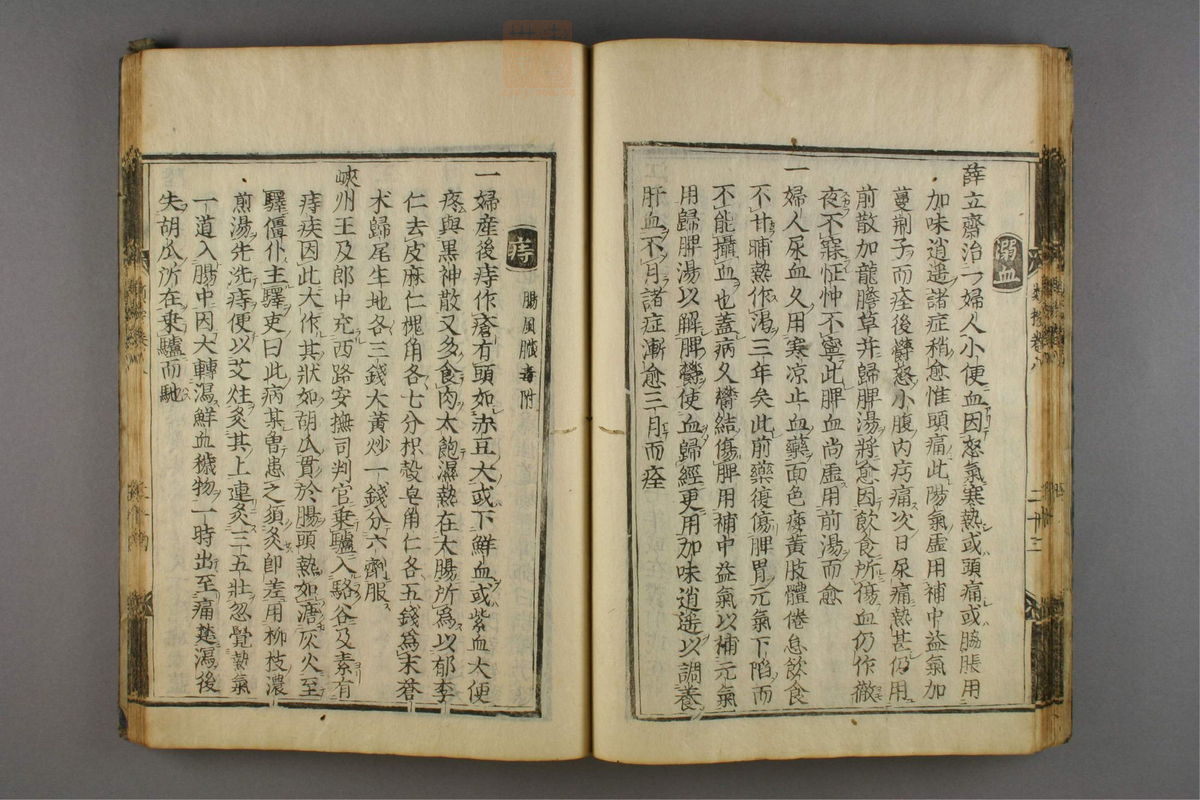 溺血
薛立齋治一婦人小便血因怒氣寒熱或頭痛或脇脹用
加味逍遥諸症稍愈惟頭痛此陽氣虛用補中益氣加
蔓荆子而痊後欝怒小腹内疞痛次日尿痛熱甚仍用
前散加龍膽草并歸脾湯將愈因飲食所傷血仍作徹
夜不寐怔忡不寧此脾血尚虛用前湯而愈
一婦人尿血久用寒凉止血藥面色痿黄肢體倦怠飲食
不甘晡熱作渴三年矣此前藥復傷脾胃元氣下陷而
不能攝血也蓋病久欝結傷脾用補中益氣以補元氣
用歸脾湯以解脾欝使血歸經更用加味逍遥以調養
肝血不月諸症漸愈三月而痊
痔 腸風臟毒附
一婦産後痔作瘡有頭如赤豆大或下鮮血或紫血大便
疼與黒神散又多食肉太飽濕熱在大腸所爲以郁李
仁去皮麻仁槐角各七分枳殼皂角仁各五錢爲末蒼
术歸尾生地各三錢大黄炒一錢分六劑服
峽州王及郎中充西路安撫司判官乗驢入駱谷及素有
痔疾因此大作其狀如胡瓜貫於腸頭熱如溏灰火至
驛僵仆主驛吏曰此病某曽患之須灸即差用柳枝濃
煎湯先洗痔便以艾炷灸其上連灸三五壯忽覺熱氣
一道入腸中因大轉瀉鮮血穢物一時出至痛楚瀉後
失胡瓜所在乗驢而馳